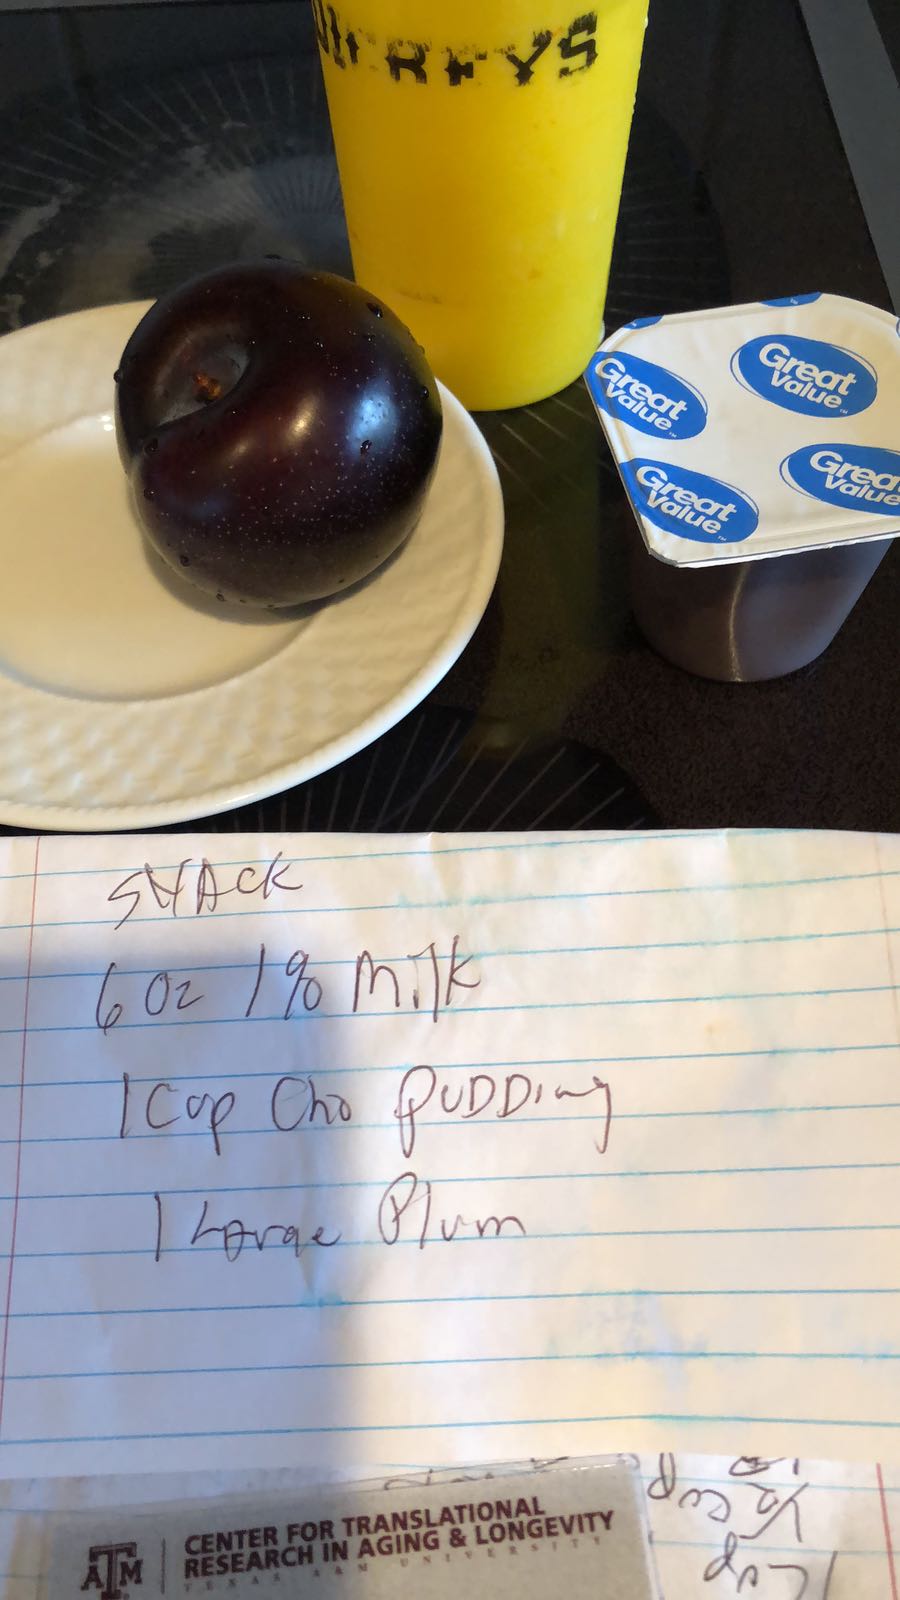 Great Value
Great Value
Great Value
Great Value
SNACK
6 Oz 1% Milk
1 Cup Cho PUDDing
1 Large Plum
CENTER FOR TRANSLATIONAL
RESEARCH IN AGING & LONGEVITY
TEXAS A&M UNIVERSITY
ATM